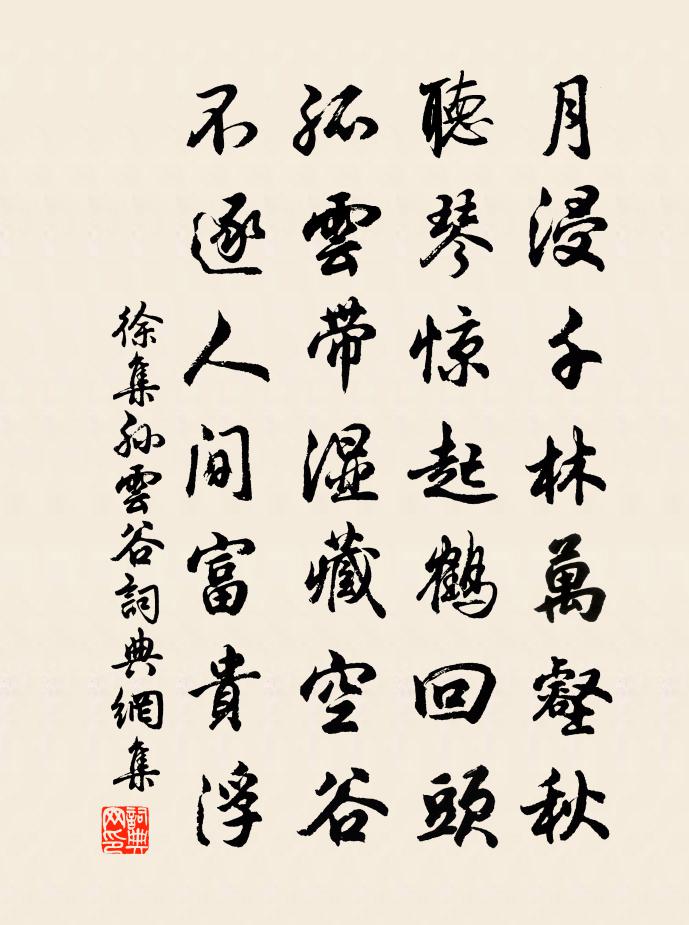 月浸千林萬壑秋
聽琴惊起鶴回頭
孤雲帶濕藏空谷
不逐人間富貴浮
徐集孤雲谷詞典網集
詞典網印